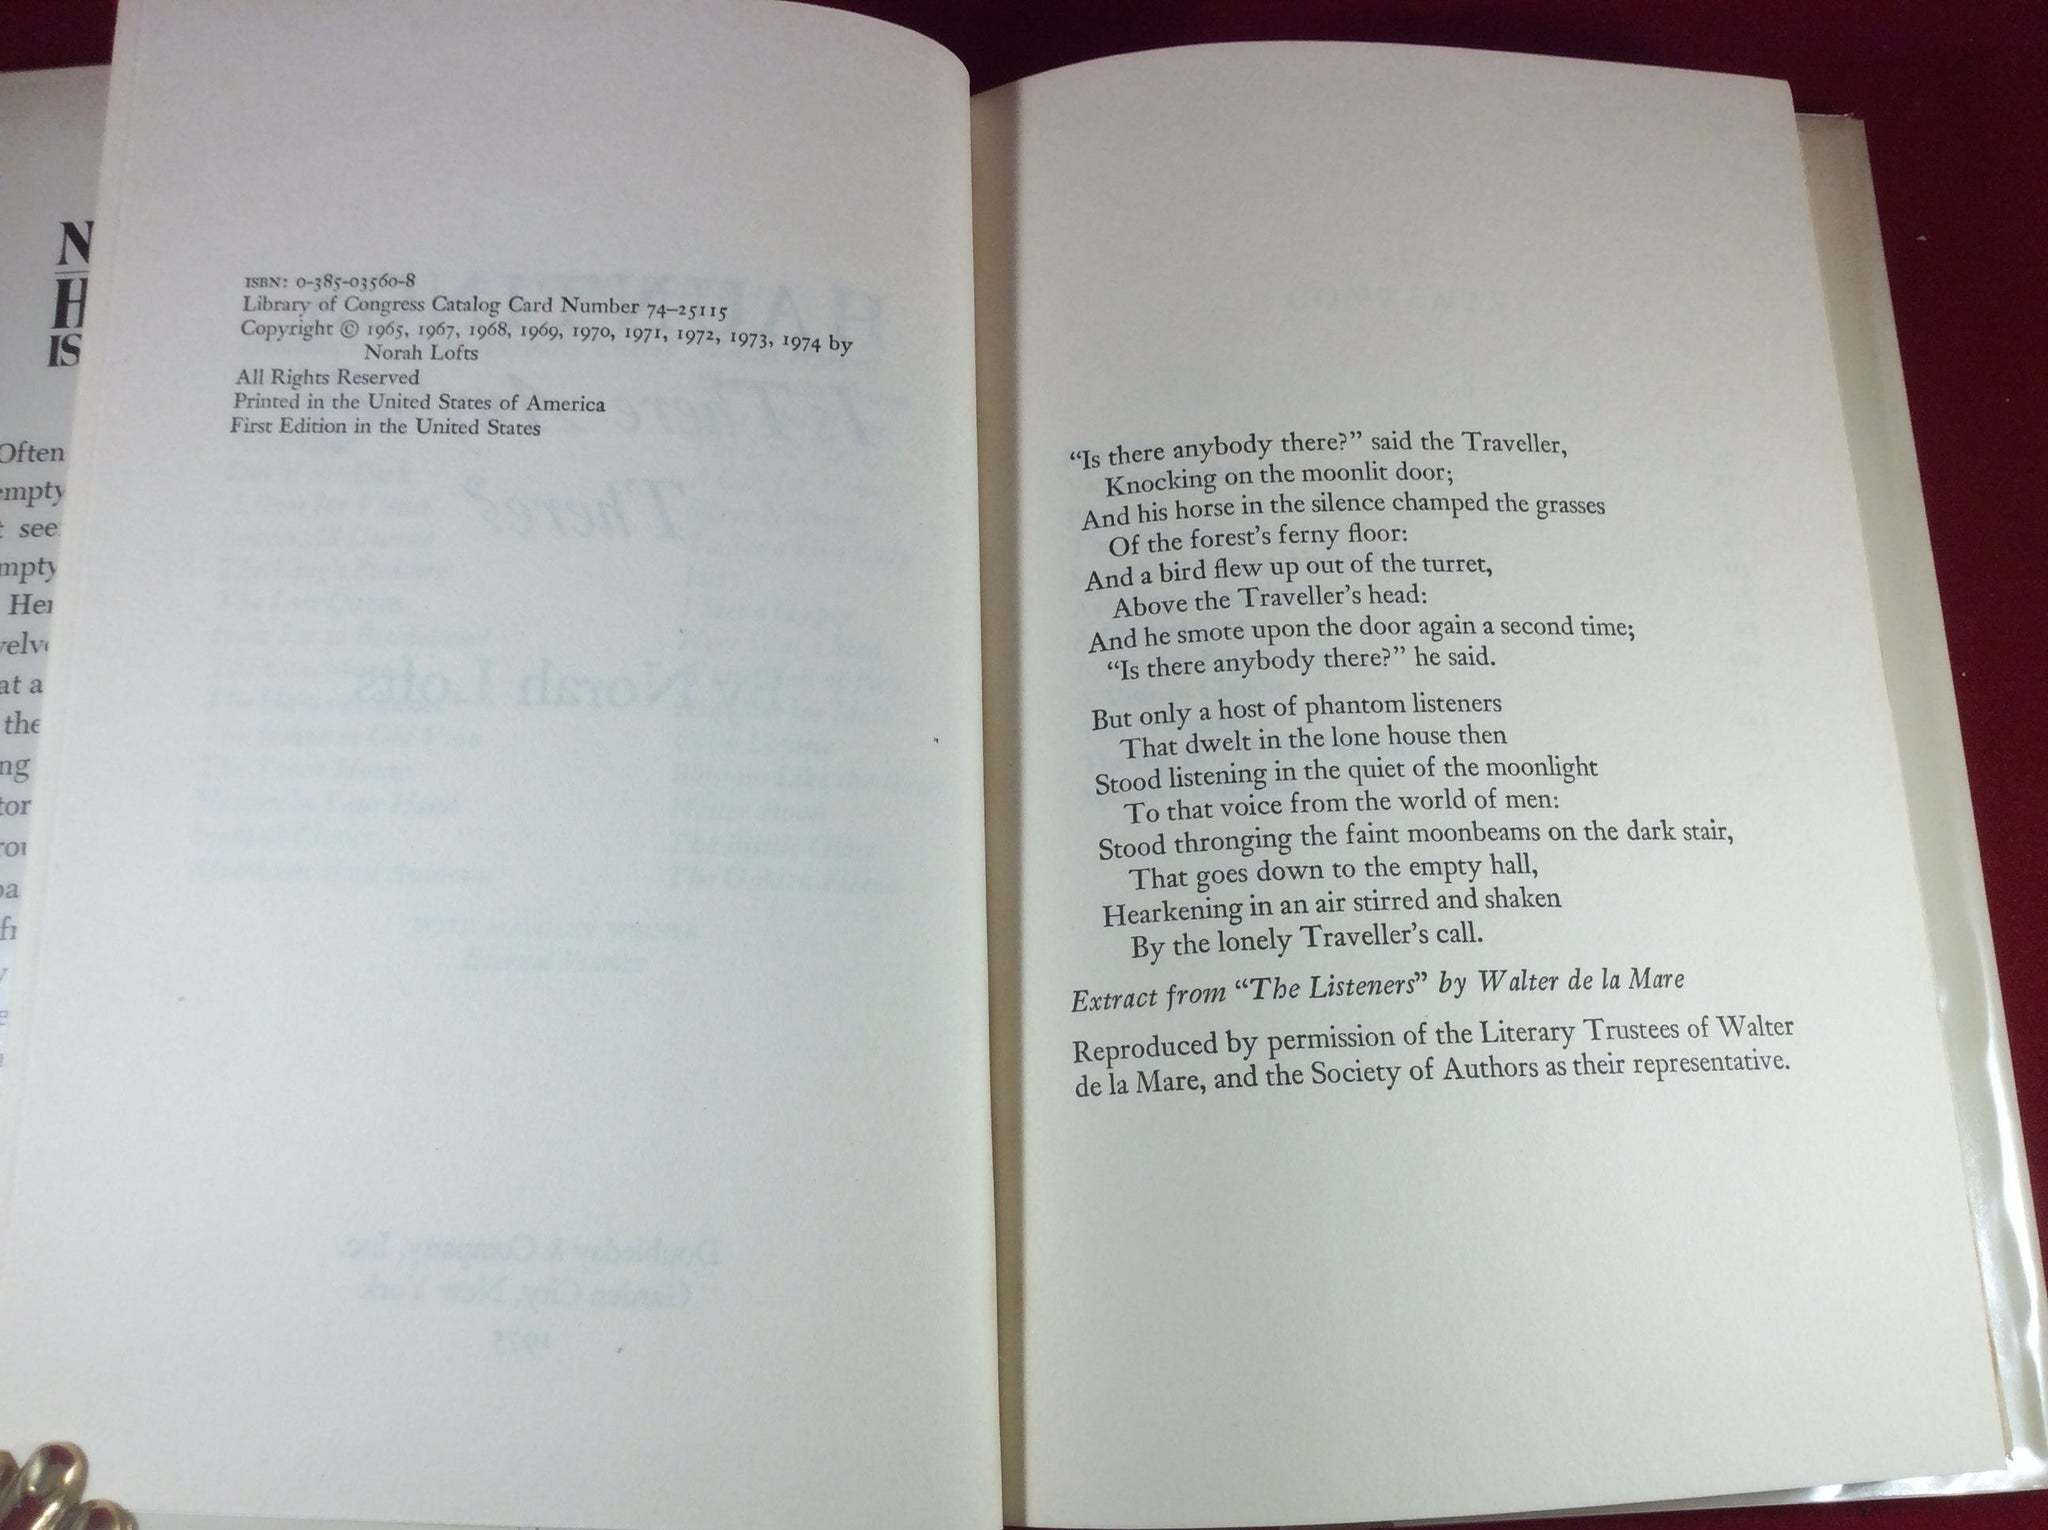 N
H
IS
Often
empty
t see
mpty
Her
velve
at a
the
ng
tor
rou
pa
fi
y
e
ISBN: 0-385-03560-8
Library of Congress Catalog Card Number 74–25115
Copyright © 1965, 1967, 1968, 1969, 1970, 1971, 1972, 1973, 1974 by
Norah Lofts
All Rights Reserved
Printed in the United States of America
First Edition in the United States
“Is there anybody there?” said the Traveller,
Knocking on the moonlit door;
And his horse in the silence champed the grasses
Of the forest’s ferny floor:
And a bird flew up out of the turret,
Above the Traveller’s head:
And he smote upon the door again a second time;
“Is there anybody there?” he said.
But only a host of phantom listeners
That dwelt in the lone house then
Stood listening in the quiet of the moonlight
To that voice from the world of men:
Stood thronging the faint moonbeams on the dark stair,
That goes down to the empty hall,
Hearkening in an air stirred and shaken
By the lonely Traveller’s call.
Extract from “The Listeners” by Walter de la Mare
Reproduced by permission of the Literary Trustees of Walter
de la Mare, and the Society of Authors as their representative.